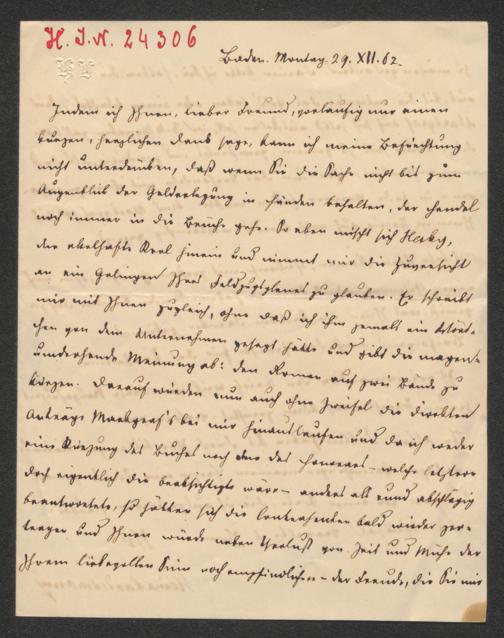 H. I. N. 24306
Baden. Montag. 29. XII. 62.
Indem ich Ihnen, lieber Freund, vorläufig nur einen
kurzen, herzlichen Dank sage, kann ich meine Befürchtung
nicht unterdrücken, daß wenn Sie die Sache nicht bis zum
Augenblick der Gelderlegung in Händen behalten, der Handel
noch immer in die Brüche gehe. So eben mischt sich
der ekelhafte Kerl hinein und nimmt mir die Zuversicht
an ein Gelingen Ihres Feldzugsplanes zu glauben. Er schreibt
mir mit Ihnen zugleich, ohne daß ich ihm jemals ein Wört-
chen von dem Unternehmen gesagt hätte und gibt die magen-
umdrehende Meinung ab: den Roman auf zwei Bände zu
kürzen. Darauf würden nun auch ohne Zweifel die direkten
Anträge Markgraf's bei mir hinauslaufen und da ich weder
eine Kürzung des Buches noch des Honorars – welch letztere
doch eigentlich die beabsichtigte wäre – anders als rund abschlägig
beantwortete, so hätten sich die Contrahenten bald wieder zer-
tragen und Ihnen würde neben Verlust von Zeit und Mühe der
Ihrem liebevollen Sinn noch empfindlichere – der Freude, die Sie mir